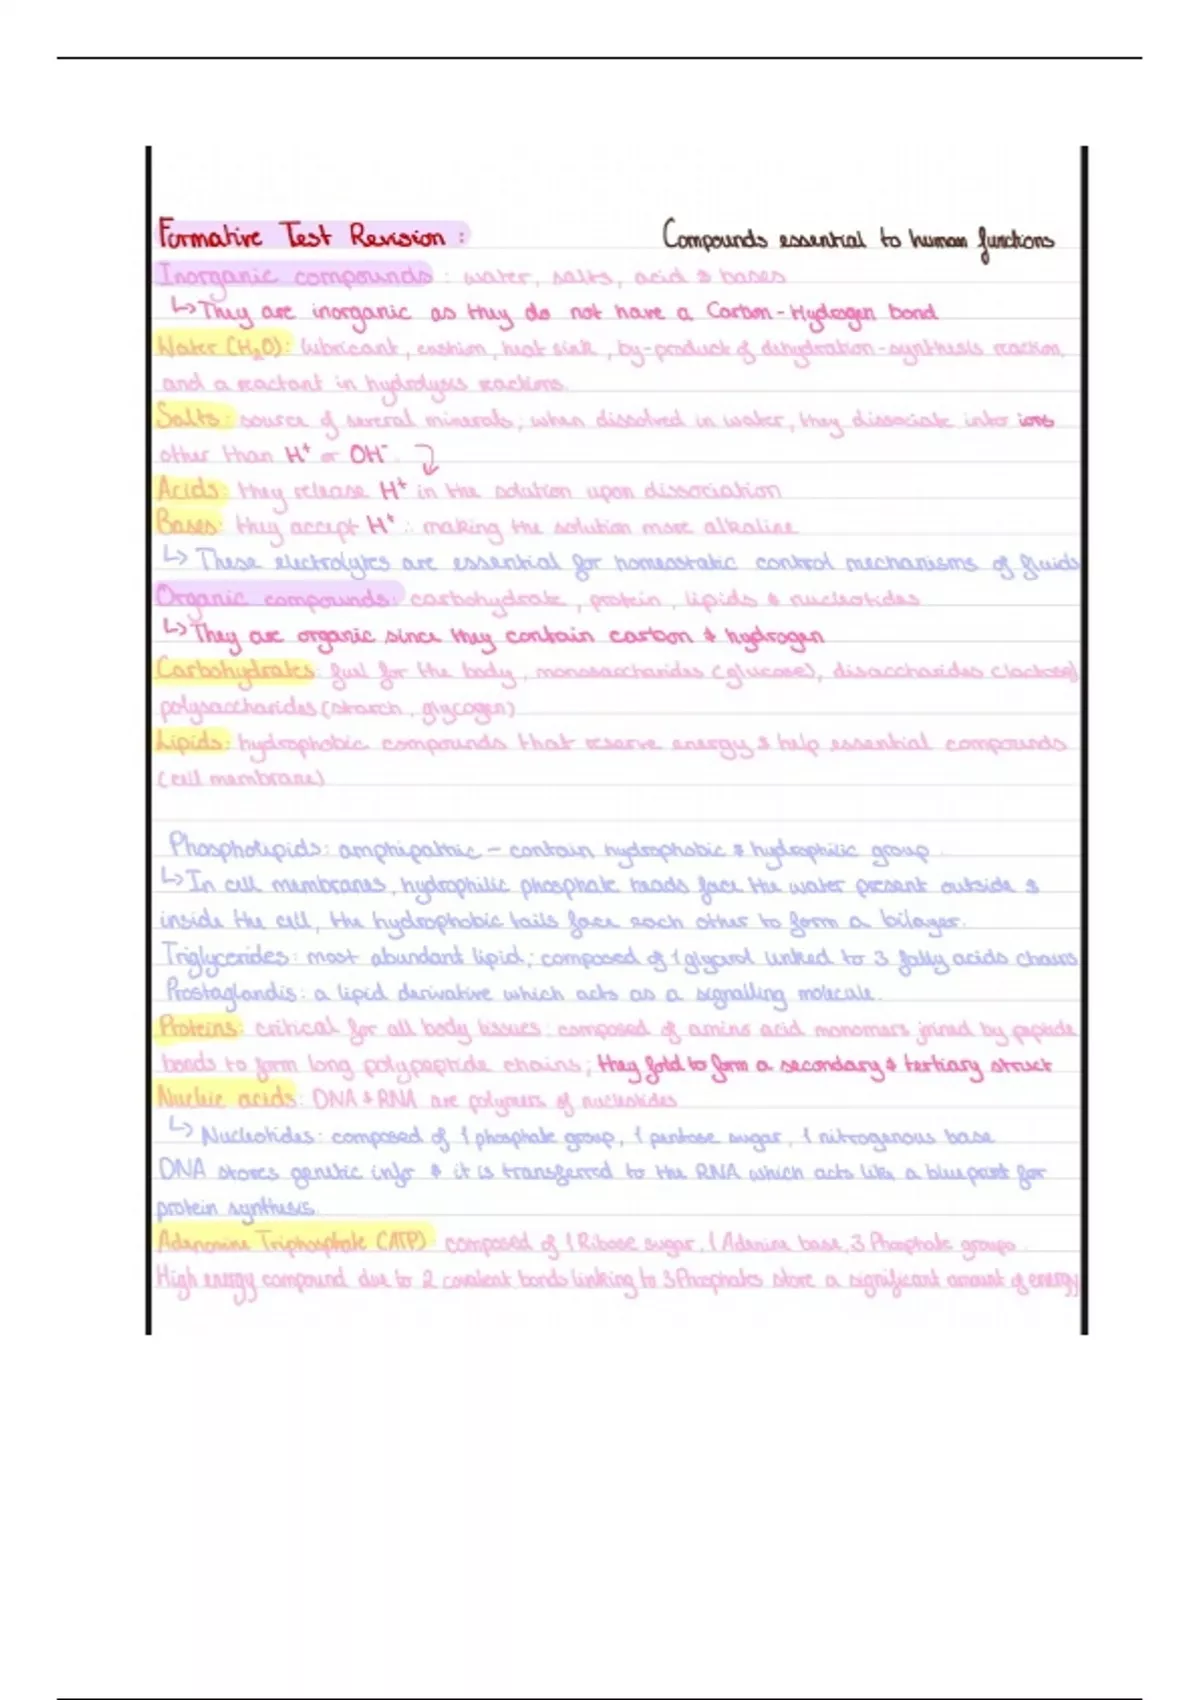 Formative Test Revision :
Compounds essential to human functions
Inorganic compounds : water, salts, acid & bases
↳ They are inorganic as they do not have a Carbon-Hydrogen bond
Water (H₂O): lubricant, cushion, heat sink, by-product of dehydration-synthesis reaction
and a reactant in hydrolysis reactions.
Salts: source of several minerals, when dissolved in water, they dissociate into ions
other than H⁺ or OH⁻
Acids: they release H⁺ in the solution upon dissociation
Bases: they accept H⁺ ∴ making the solution more alkaline
↳ These electrolytes are essential for homeostatic control mechanisms of fluids
Organic compounds: carbohydrate, protein, lipids & nucleotides
↳ They are organic since they contain carbon & hydrogen
Carbohydrates: fuel for the body, monosaccharides (glucose), disaccharides (lactose)
polysaccharides (starch, glycogen)
Lipids: hydrophobic compounds that reserve energy & help essential compounds
(cell membrane)
Phospholipids: amphipathic - contain hydrophobic & hydrophilic group.
↳ In cell membranes, hydrophilic phosphate heads face the water present outside &
inside the cell, the hydrophobic tails face each other to form a bilayer.
Triglycerides: most abundant lipid; composed of 1 glycerol linked to 3 fatty acids chains
Prostaglandis: a lipid derivative which acts as a signalling molecule.
Proteins: critical for all body tissues: composed of amino acid monomers joined by peptide
bonds to form long polypeptide chains; they fold to form a secondary & tertiary struct
Nucleic acids: DNA & RNA are polymers of nucleotides
↳ Nucleotides: composed of 1 phosphate group, 1 pentose sugar, 1 nitrogenous base
DNA stores genetic info & it is transferred to the RNA which acts like a blueprint for
protein synthesis.
Adenonine Triphosphate (ATP) composed of 1 Ribose sugar, 1 Adenine base, 3 Phosphate groups.
High energy compound due to 2 covalent bonds linking to 3 Phosphates store a significant amount of energy